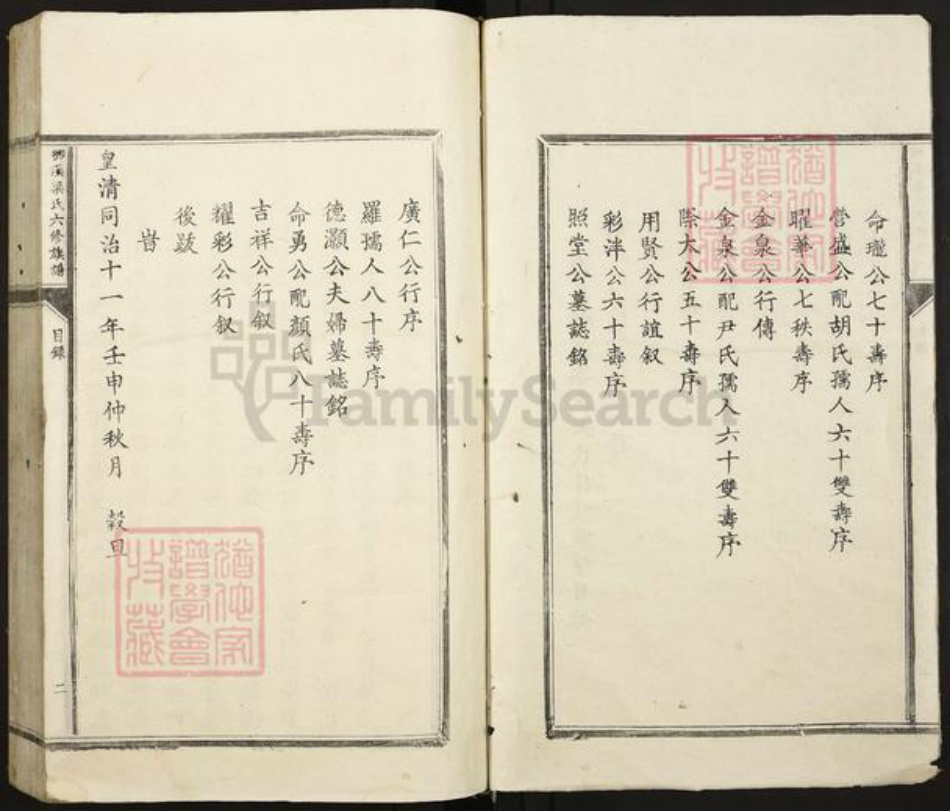 命瓏公七十壽序
營盛公配胡氏孺人六十雙壽序
曜華公七秩壽序
金泉公行傳
金泉公配尹氏孺人六十雙壽序
際大公五十壽序
用賢公行誼叙
彩泮公六十壽序
照堂公墓誌銘
廣仁公行序
羅孺人八十壽序
德灝公夫婦墓誌銘
命勇公配顏氏八十壽序
吉祥公行叙
耀彩公行叙
後跋
旹
皇清同治十一年壬申仲秋月 穀旦
梁氏六修族譜
目錄
二
猶他家
譜學會
收藏
猶他家
譜學會
收藏
FamilySearch